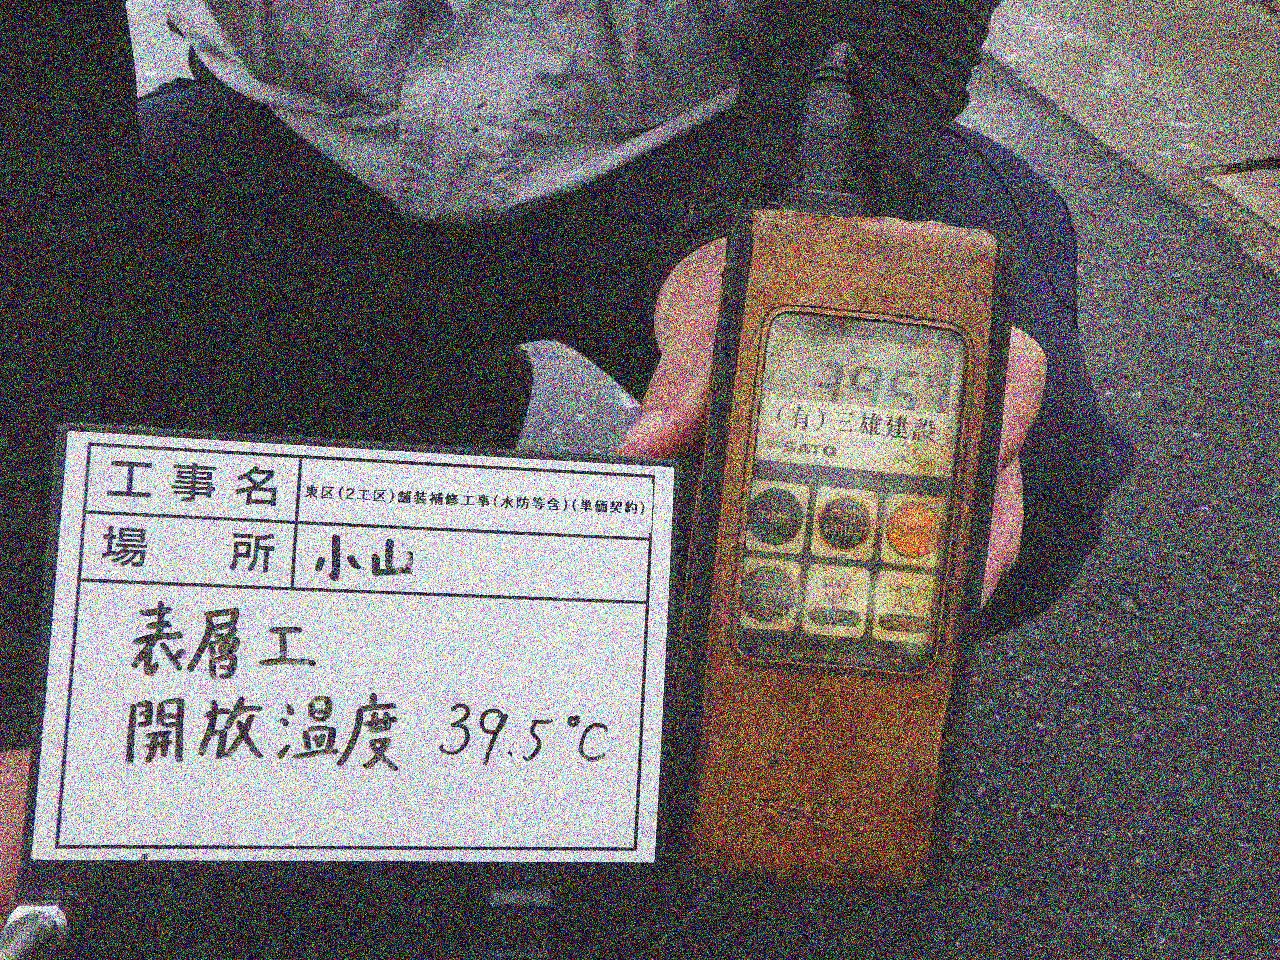 工事名 東区(2工区)舗装補修工事(水防等含)(単価契約)
場所 小山
表層工
開放温度 39.5℃
39.5
(有)三雄建設
SATO